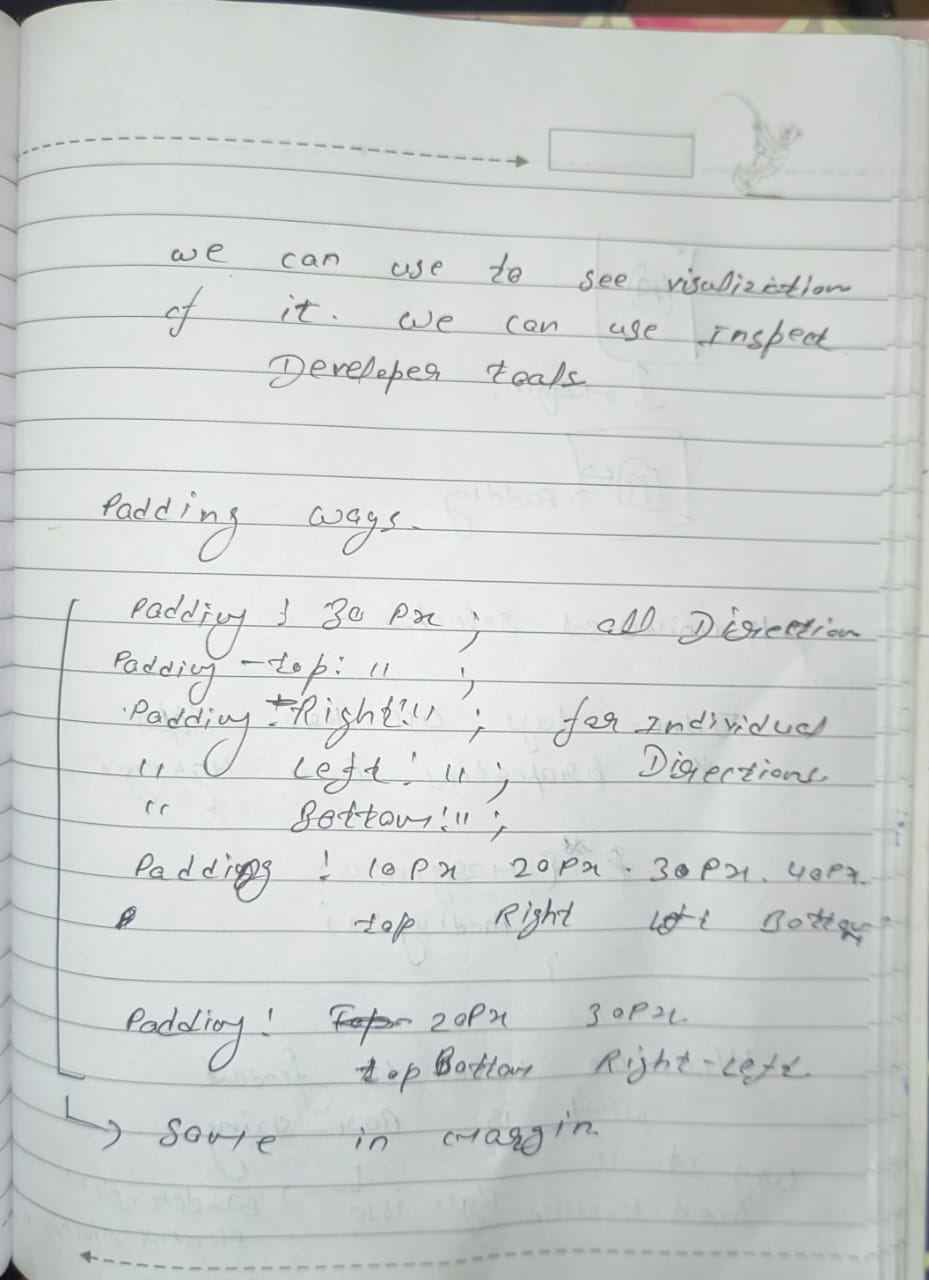 we can use to see visualization
of it. we can use Inspect
Developer tools
Padding ways.
Padding : 30 Px ; all Direction
Padding -top: " ;
Padding -Right: " ; for Individual
" Left : " ; Directions
" Bottom: " ;
Padding : 10Px 20Px 30Px. 40Px.
top Right Left Bottom
Padding: 20Px 30Px.
top Bottom Right-Left.
→ Same in margin.